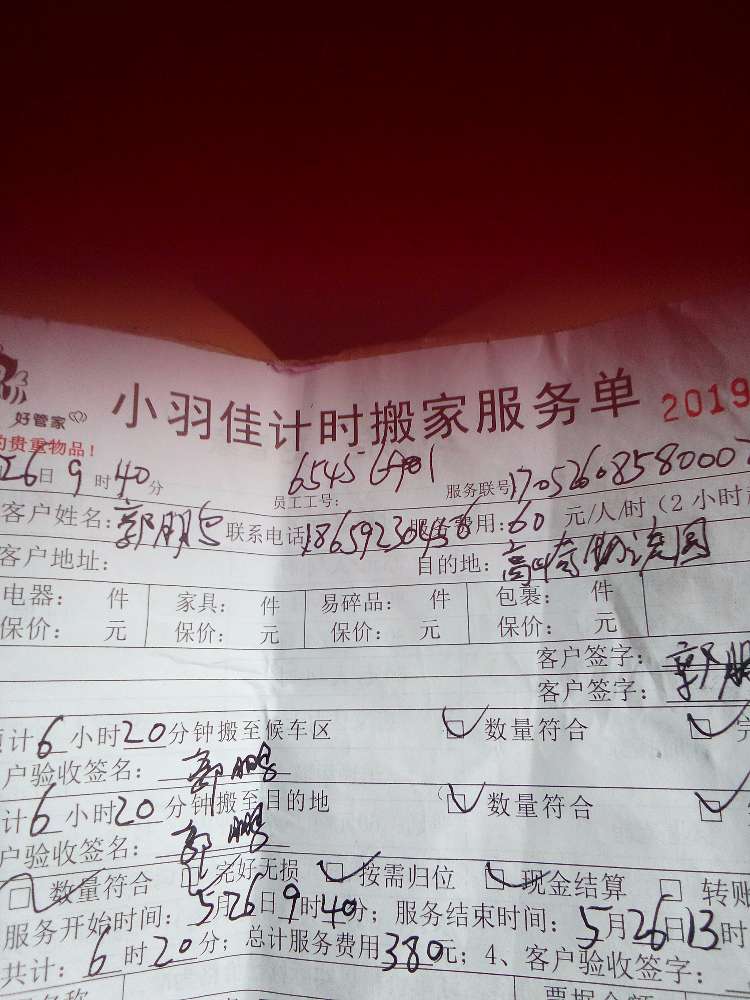 好管家
小羽佳计时搬家服务单 2019
的贵重物品!
26日9时40分 员工工号: 服务联号:
客户姓名:郭鹏 联系电话:18659230456 服务费用:60元/人/时(2小时
客户地址: 目的地:
电器: 件 家具: 件 易碎品: 件 包裹: 件
保价: 元 保价: 元 保价: 元 保价: 元
客户签字:郭鹏
客户签字:
预计6小时20分钟搬至候车区 数量符合 完
户验收签名:郭鹏
计6小时20分钟搬至目的地 数量符合
户验收签名:郭鹏
数量符合 完好无损 按需归位 现金结算 转账
服务开始时间:5月26日9时40分;服务结束时间:5月26日13时
共计:6时20分;总计服务费用380元;4、客户验收签字: